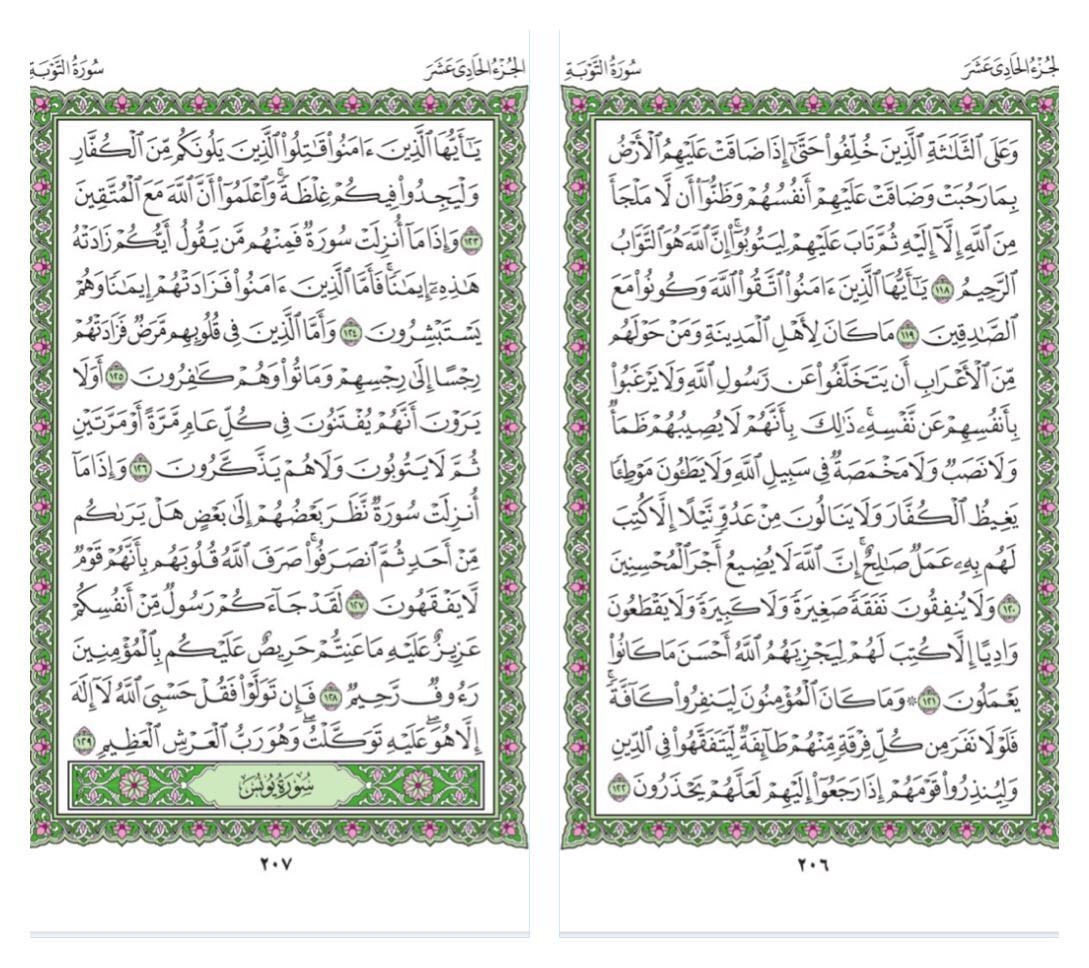 الجُزْءُ الحَادِى عَشَرَ
سُورَةُ التَّوْبَةِ
وَعَلَى ٱلثَّلَٰثَةِ ٱلَّذِينَ خُلِّفُوا۟ حَتَّىٰٓ إِذَا ضَاقَتْ عَلَيْهِمُ ٱلْأَرْضُ
بِمَا رَحُبَتْ وَضَاقَتْ عَلَيْهِمْ أَنفُسُهُمْ وَظَنُّوٓا۟ أَن لَّا مَلْجَأَ
مِنَ ٱللَّهِ إِلَّآ إِلَيْهِ ثُمَّ تَابَ عَلَيْهِمْ لِيَتُوبُوٓا۟ۚ إِنَّ ٱللَّهَ هُوَ ٱلتَّوَّابُ
ٱلرَّحِيمُ ١١٨ يَٰٓأَيُّهَا ٱلَّذِينَ ءَامَنُوا۟ ٱتَّقُوا۟ ٱللَّهَ وَكُونُوا۟ مَعَ
ٱلصَّٰدِقِينَ ١١٩ مَا كَانَ لِأَهْلِ ٱلْمَدِينَةِ وَمَنْ حَوْلَهُم
مِّنَ ٱلْأَعْرَابِ أَن يَتَخَلَّفُوا۟ عَن رَّسُولِ ٱللَّهِ وَلَا يَرْغَبُوا۟
بِأَنفُسِهِمْ عَن نَّفْسِهِۦۚ ذَٰلِكَ بِأَنَّهُمْ لَا يُصِيبُهُمْ ظَمَأٌ
وَلَا نَصَبٌ وَلَا مَخْمَصَةٌ فِى سَبِيلِ ٱللَّهِ وَلَا يَطَـُٔونَ مَوْطِئًا
يَغِيظُ ٱلْكُفَّارَ وَلَا يَنَالُونَ مِنْ عَدُوٍّ نَّيْلًا إِلَّا كُتِبَ
لَهُم بِهِۦ عَمَلٌ صَٰلِحٌۚ إِنَّ ٱللَّهَ لَا يُضِيعُ أَجْرَ ٱلْمُحْسِنِينَ
١٢٠ وَلَا يُنفِقُونَ نَفَقَةً صَغِيرَةً وَلَا كَبِيرَةً وَلَا يَقْطَعُونَ
وَادِيًا إِلَّا كُتِبَ لَهُمْ لِيَجْزِيَهُمُ ٱللَّهُ أَحْسَنَ مَا كَانُوا۟
يَعْمَلُونَ ١٢١ ۞ وَمَا كَانَ ٱلْمُؤْمِنُونَ لِيَنفِرُوا۟ كَآفَّةًۚ
فَلَوْلَا نَفَرَ مِن كُلِّ فِرْقَةٍ مِّنْهُمْ طَآئِفَةٌ لِّيَتَفَقَّهُوا۟ فِى ٱلدِّينِ
وَلِيُنذِرُوا۟ قَوْمَهُمْ إِذَا رَجَعُوٓا۟ إِلَيْهِمْ لَعَلَّهُمْ يَحْذَرُونَ ١٢٢
٢٠٦
الجُزْءُ الحَادِى عَشَرَ
سُورَةُ التَّوْبَةِ
يَٰٓأَيُّهَا ٱلَّذِينَ ءَامَنُوا۟ قَٰتِلُوا۟ ٱلَّذِينَ يَلُونَكُم مِّنَ ٱلْكُفَّارِ
وَلْيَجِدُوا۟ فِيكُمْ غِلْظَةًۚ وَٱعْلَمُوٓا۟ أَنَّ ٱللَّهَ مَعَ ٱلْمُتَّقِينَ
١٢٣ وَإِذَا مَآ أُنزِلَتْ سُورَةٌ فَمِنْهُم مَّن يَقُولُ أَيُّكُمْ زَادَتْهُ
هَٰذِهِۦٓ إِيمَٰنًاۚ فَأَمَّا ٱلَّذِينَ ءَامَنُوا۟ فَزَادَتْهُمْ إِيمَٰنًا وَهُمْ
يَسْتَبْشِرُونَ ١٢٤ وَأَمَّا ٱلَّذِينَ فِى قُلُوبِهِم مَّرَضٌ فَزَادَتْهُمْ
رِجْسًا إِلَىٰ رِجْسِهِمْ وَمَاتُوا۟ وَهُمْ كَٰفِرُونَ ١٢٥ أَوَلَا
يَرَوْنَ أَنَّهُمْ يُفْتَنُونَ فِى كُلِّ عَامٍ مَّرَّةً أَوْ مَرَّتَيْنِ
ثُمَّ لَا يَتُوبُونَ وَلَا هُمْ يَذَّكَّرُونَ ١٢٦ وَإِذَا مَآ
أُنزِلَتْ سُورَةٌ نَّظَرَ بَعْضُهُمْ إِلَىٰ بَعْضٍ هَلْ يَرَىٰكُم
مِّنْ أَحَدٍ ثُمَّ ٱنصَرَفُوا۟ۚ صَرَفَ ٱللَّهُ قُلُوبَهُم بِأَنَّهُمْ قَوْمٌ
لَّا يَفْقَهُونَ ١٢٧ لَقَدْ جَآءَكُمْ رَسُولٌ مِّنْ أَنفُسِكُمْ
عَزِيزٌ عَلَيْهِ مَا عَنِتُّمْ حَرِيصٌ عَلَيْكُم بِٱلْمُؤْمِنِينَ
رَءُوفٌ رَّحِيمٌ ١٢٨ فَإِن تَوَلَّوْا۟ فَقُلْ حَسْبِىَ ٱللَّهُ لَآ إِلَٰهَ
إِلَّا هُوَۖ عَلَيْهِ تَوَكَّلْتُۖ وَهُوَ رَبُّ ٱلْعَرْشِ ٱلْعَظِيمِ ١٢٩
سُورَةُ يُونُسَ
٢٠٧